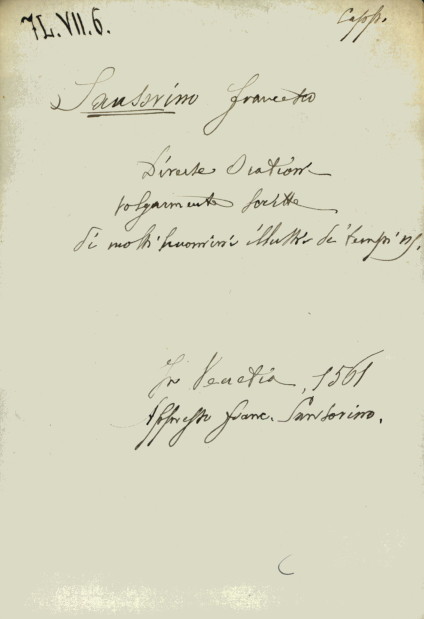 7L.VII.6.
Capp.
Sansovino Francesco
Diverse Orationi
volgarmente scritte
di molti huomini illustri de' tempi ns.
In Venetia, 1561
Appresso Franc. Sansovino.